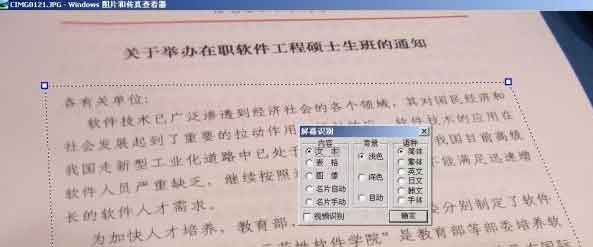 CIMG0121.JPG - Windows 图片和传真查看器
关于举办在职软件工程硕士生班的通知
各有关单位:
软件技术已广泛渗透到经济社会的各个领域，其对国民经济和
社会发展起到了重要的拉动作用
软件技术的应用在
我国走新型工业化道路中已处于
我国目前高级
软件人员严重缺乏，继续按照
能满足迅速增
长的软件人才需求。
为加快人才培养，教育部、
分别制定了软件
软件学院”是教育部等部委培养软
屏幕识别
内容
背景
语种
文本
浅色
简体
表格
繁体
图像
深色
英文
名片自动
日文
韩文
名片手动
自动
手体
视频识别
确定